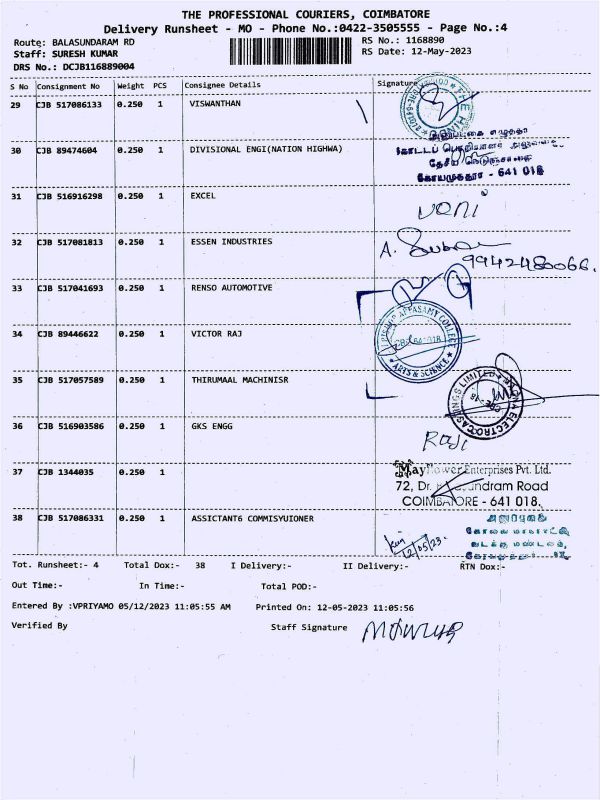 THE PROFESSIONAL COURIERS, COIMBATORE
Delivery Runsheet - MO - Phone No.:0422-3505555 - Page No.:4
Route: BALASUNDARAM RD
RS No.: 1168890
Staff: SURESH KUMAR
RS Date: 12-May-2023
DRS No.: DCJB116889004
S No Consignment No Weight PCS Consignee Details Signature
29 CJB 517086133 0.250 1 VISWANTHAN
30 CJB 89474604 0.250 1 DIVISIONAL ENGI(NATION HIGHWA)
கோயமுத்தூர் - 641 018
31 CJB 516916298 0.250 1 EXCEL
32 CJB 517081813 0.250 1 ESSEN INDUSTRIES
9942480066.
33 CJB 517041693 0.250 1 RENSO AUTOMOTIVE
APPASAMY COLLEGE
641018
ARTS & SCIENCE
34 CJB 89446622 0.250 1 VICTOR RAJ
35 CJB 517057589 0.250 1 THIRUMAAL MACHINISR
36 CJB 516903586 1 0.250 GKS ENGG
37 CJB 1344035 0.250 1
Mayflower Enterprises Pvt. Ltd.
72, Dr. undram Road
COIMBATORE - 641 018.
38 CJB 517086331 0.250 1 ASSICTANT6 COMMISYUIONER
12/05/23.
Tot. Runsheet:- 4 Total Dox:- 38 I Delivery:- II Delivery:- RTN Dox:-
Out Time:- In Time:- Total POD:-
Entered By :VPRIYAMO 05/12/2023 11:05:55 AM Printed On: 12-05-2023 11:05:56
Verified By Staff Signature